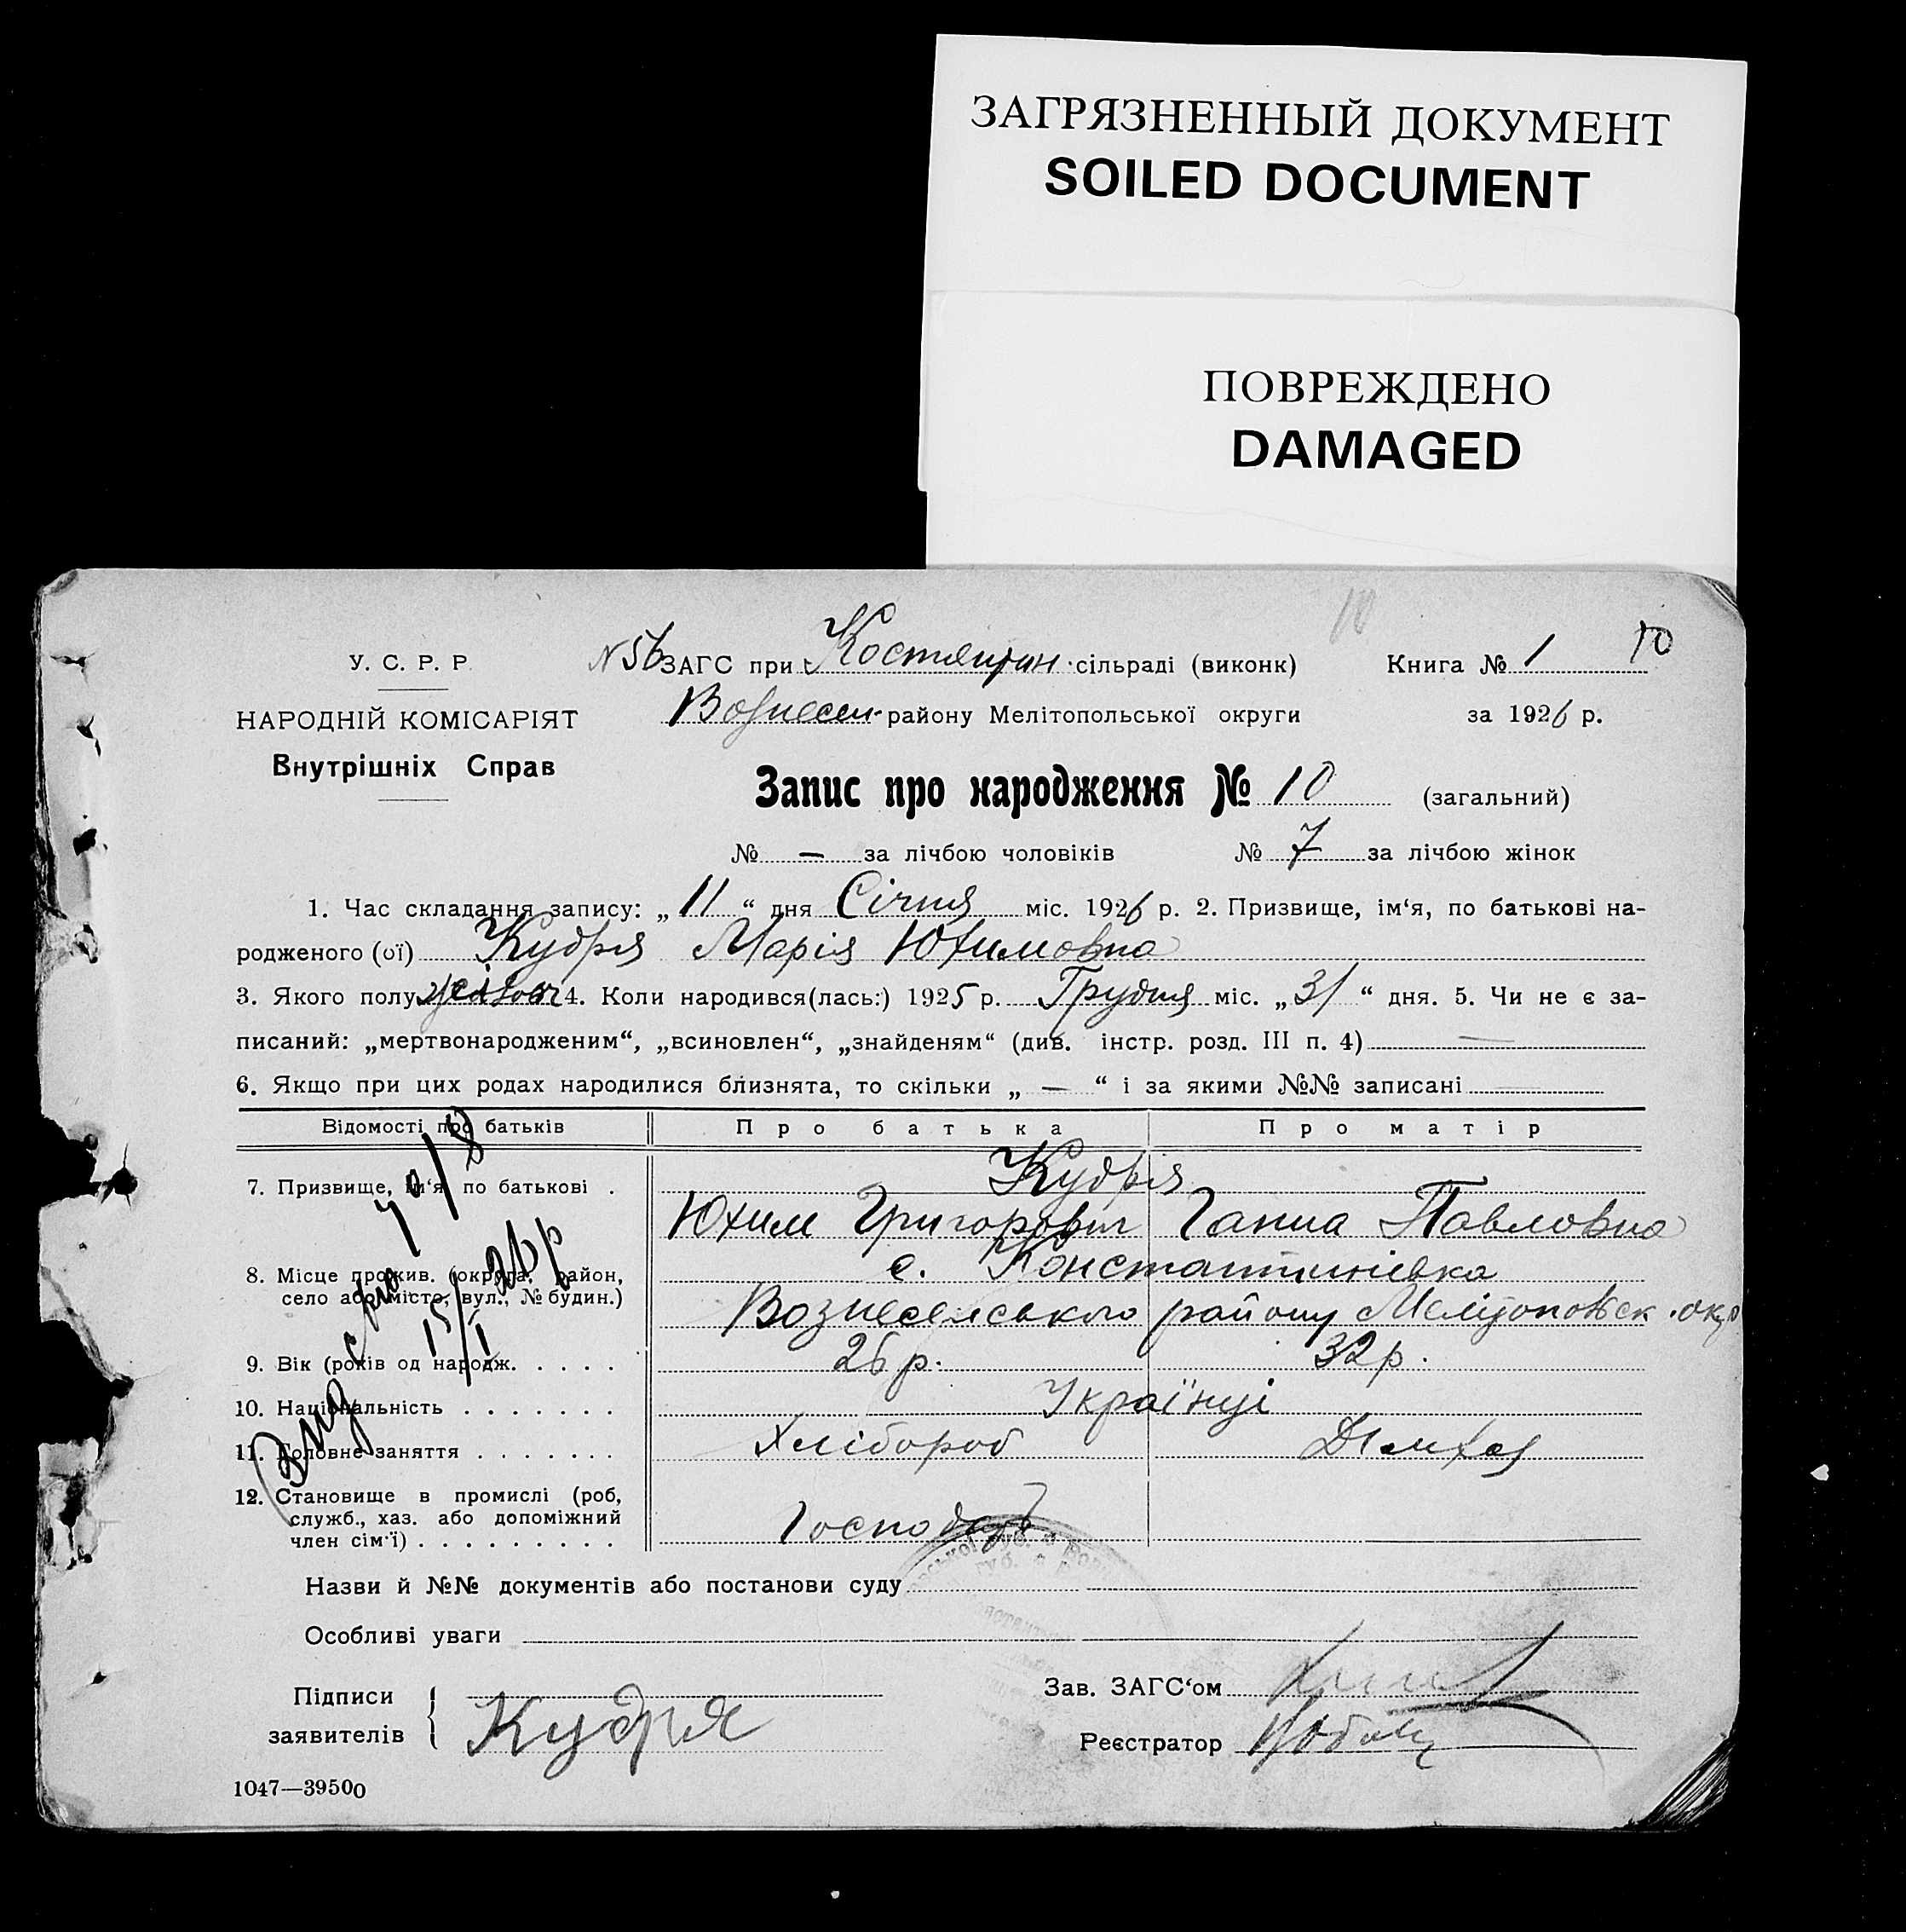 ЗАГРЯЗНЕННЫЙ ДОКУМЕНТ
SOILED DOCUMENT
ПОВРЕЖДЕНО
DAMAGED
10
У. С. Р. Р.
НАРОДНІЙ КОМІСАРІЯТ
Внутрішніх Справ
N 56 ЗАГС при Костянтин. сільраді (виконк) Книга № 1 10
Вознесен. району Мелітопольської округи за 1926 р.
Запис про народження № 10 (загальний)
№ — за лічбою чоловіків № 7 за лічбою жінок
1. Час складання запису: „ 11 “ дня Січня міс. 1926 р. 2. Призвище, ім‘я, по батькові на-
родженого (ої) Кудря Марія Юхимовна
3. Якого полу 4. Коли народився(лась:) 1925 р. Грудня міс. „ 31 “ дня. 5. Чи не є за-
писаний: „мертвонародженим“, „всиновлен“, „знайденям“ (див. інстр. розд. III п. 4) —
6. Якщо при цих родах народилися близнята, то скільки „ — “ і за якими №№ записані
Відомості про батьків Про батька Про матір
7. Призвище, ім‘я, по батькові . Кудря
Юхим Григорович Ганна Павловна
8. Місце прожив. (округа, район, с. Константинівка
село або місто, вул., № будин.) Вознесенського району Мелітопольск. окр
9. Вік (років од народж. . . . . 26 р. 32 р.
10. Національність . . . . . . . Українці
11. Головне заняття . . . . . . . Хлібороб
12. Становище в промислі (роб,
служб., хаз. або допоміжний
член сім‘ї) . . . . . . . . . Господарь
Назви й №№ документів або постанови суду
Особливі уваги
Підписи
заявителів
Кудря
Зав. ЗАГС‘ом
Реєстратор
1047—39500
15/I 26 р